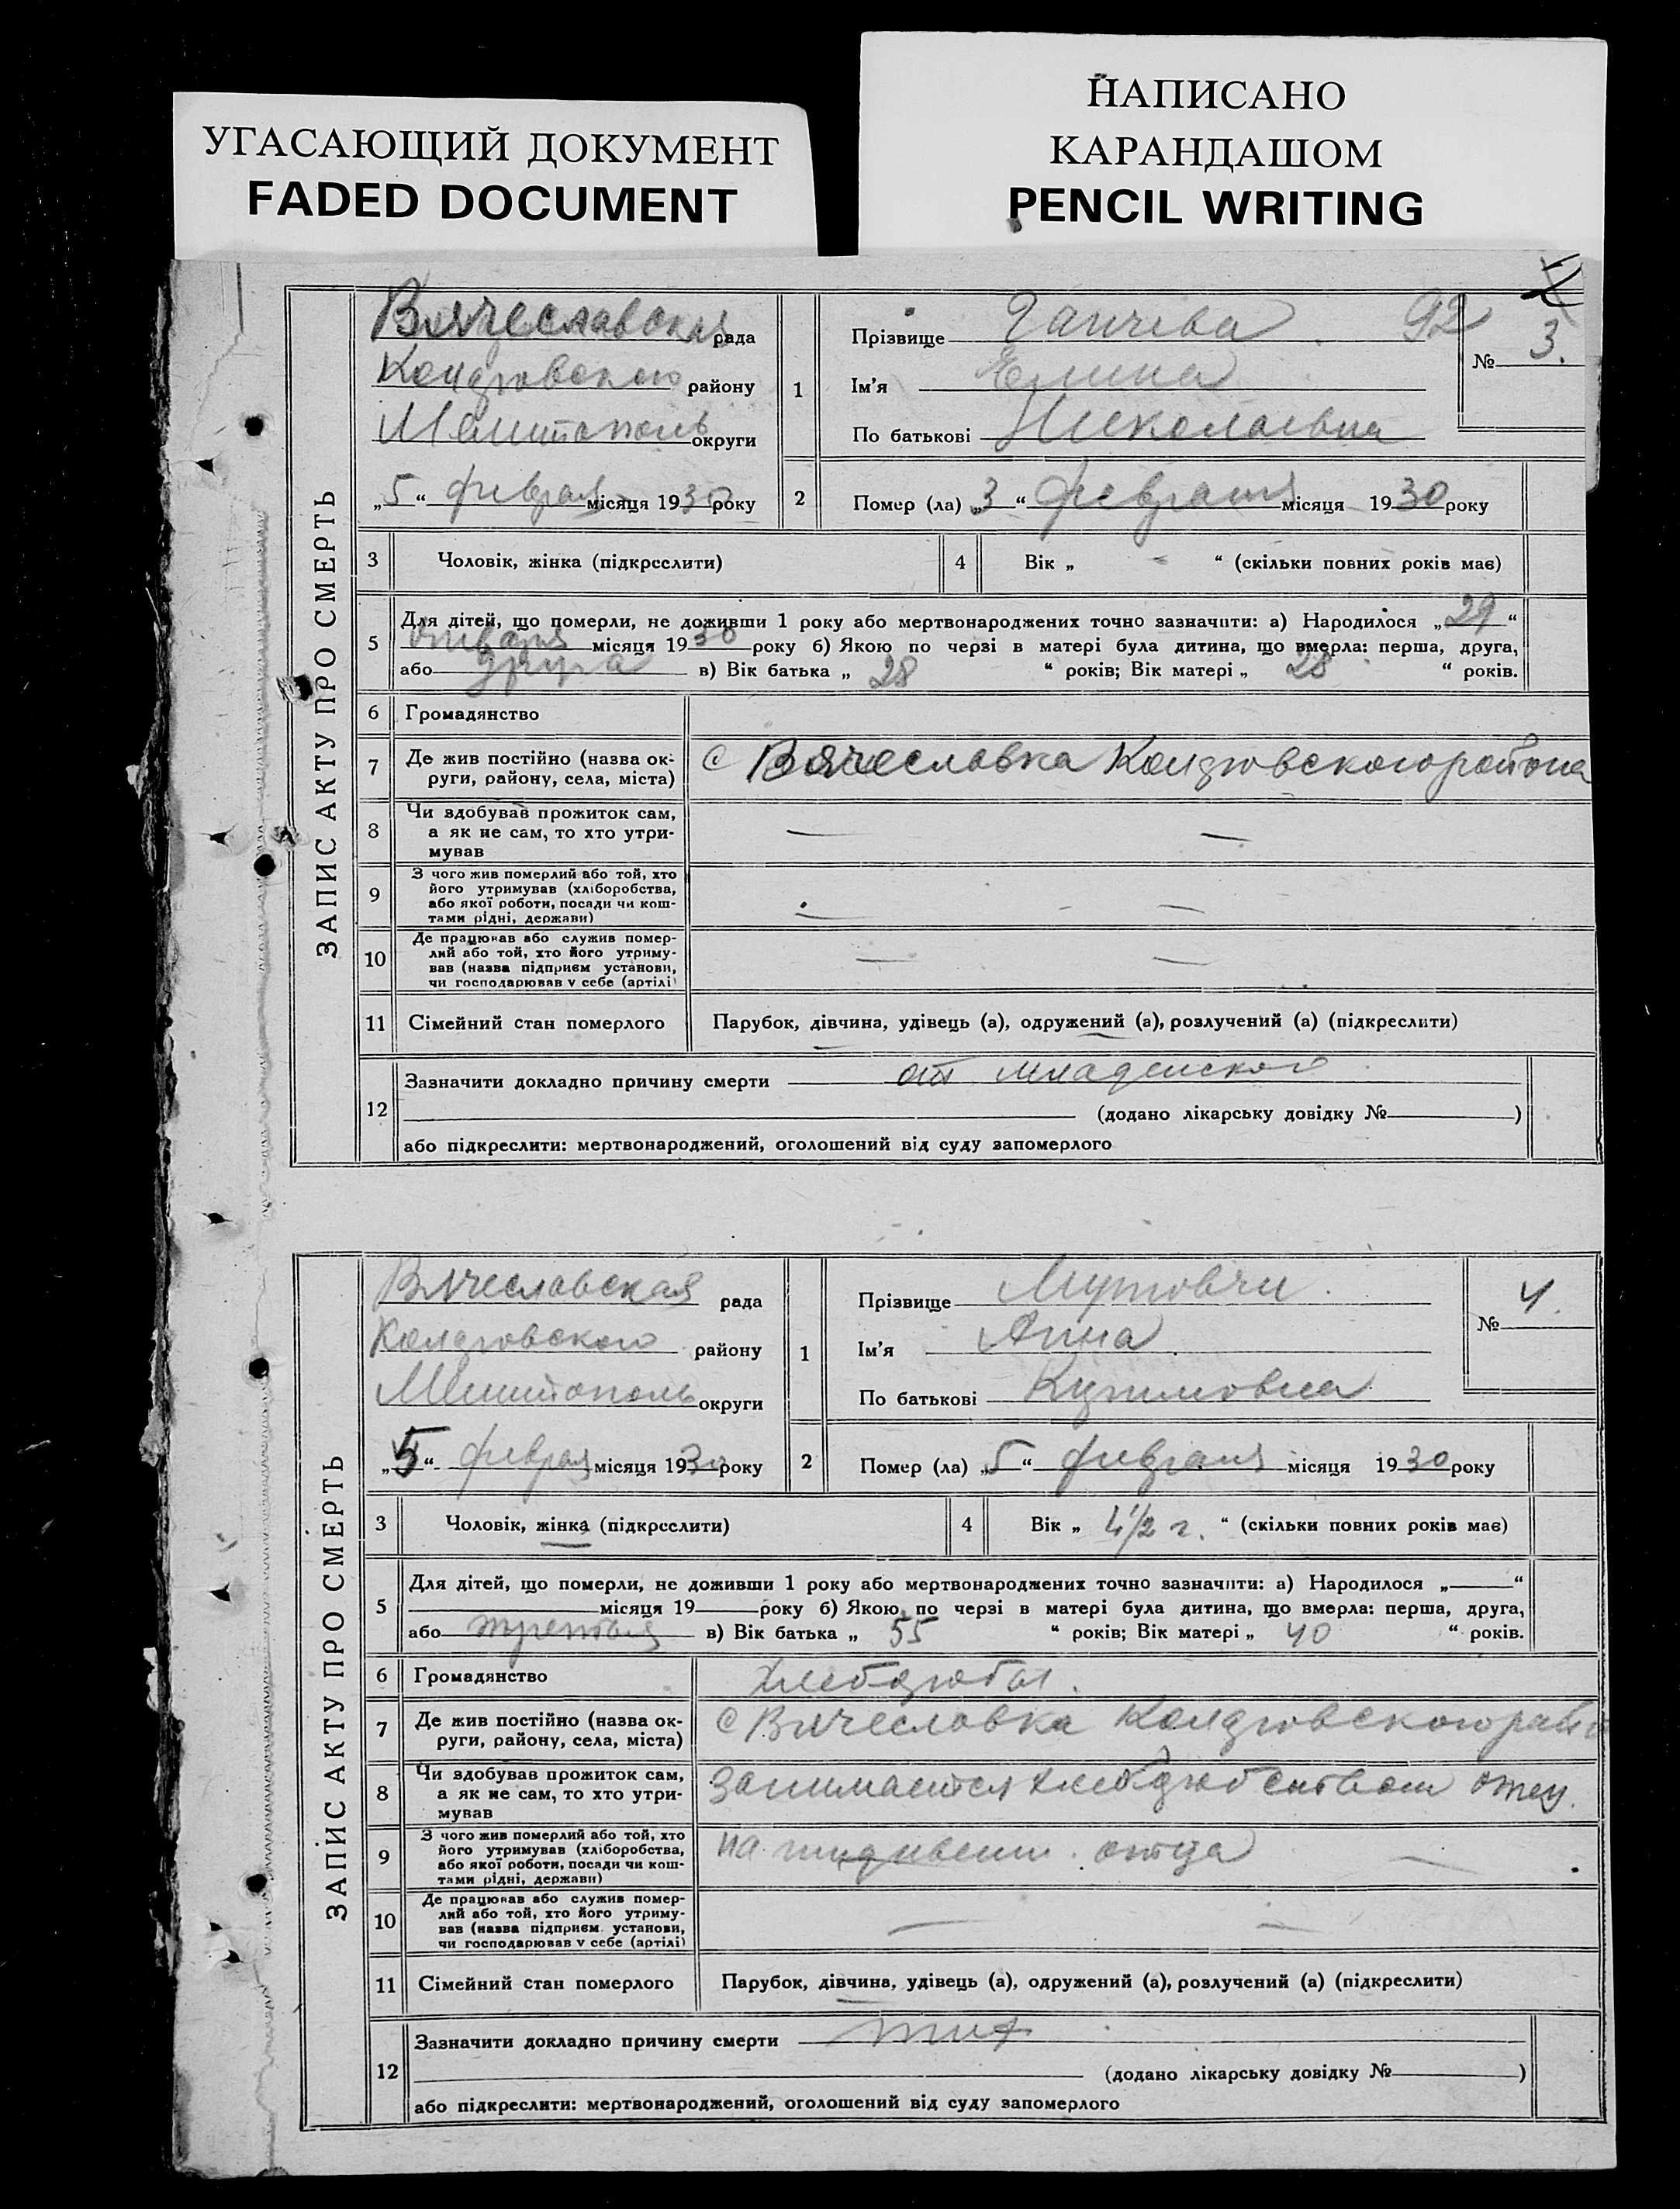 УГАСАЮЩИЙ ДОКУМЕНТ
FADED DOCUMENT
НАПИСАНО
КАРАНДАШОМ
PENCIL WRITING
ЗАПИС АКТУ ПРО СМЕРТЬ
Вячеславская рада
району
Мелитополь округи
„5“ февраля місяця 1930 року
1
Прізвище Ганчева 92
Ім'я Елена
По батькові Николаевна
№ 3.
2 Помер (ла) „3“ февраля місяця 1930 року
3 Чоловік, жінка (підкреслити)
4 Вік „ “ (скільки повних років має)
5 Для дітей, що померли, не доживши 1 року або мертвонароджених точно зазначити: а) Народилося „29“
января місяця 1930 року б) Якою по черзі в матері була дитина, що вмерла: перша, друга,
або друга в) Вік батька „ 28 “ років; Вік матері „ 28 “ років.
6 Громадянство
7 Де жив постійно (назва ок-
руги, району, села, міста)
с Вячеславка района
8 Чи здобував прожиток сам,
а як не сам, то хто утри-
мував
— —
9 З чого жив померлий або той, хто
його утримував (хліборобства,
або якої роботи, посади чи кош-
тами рідні, держави)
— —
10 Де працював або служив помер-
лий або той, хто його утриму-
вав (назва підприєм установи,
чи господарював у себе (артілі)
— —
11 Сімейний стан померлого Парубок, дівчина, удівець (а), одружений (а), розлучений (а) (підкреслити)
12 Зазначити докладно причину смерти от младенского
(додано лікарську довідку № )
або підкреслити: мертвонароджений, оголошений від суду запомерлого
ЗАПИС АКТУ ПРО СМЕРТЬ
Вячеславская рада
району
Мелитополь округи
„5“ февраля місяця 1930 року
1
Прізвище
Ім'я Анна
По батькові
№ 4.
2 Помер (ла) „5“ февраля місяця 1930 року
3 Чоловік, жінка (підкреслити)
4 Вік „ 4 1/2 г. “ (скільки повних років має)
5 Для дітей, що померли, не доживши 1 року або мертвонароджених точно зазначити: а) Народилося „ “
місяця 19 року б) Якою по черзі в матері була дитина, що вмерла: перша, друга,
або третья в) Вік батька „ 55 “ років; Вік матері „ 40 “ років.
6 Громадянство
7 Де жив постійно (назва ок-
руги, району, села, міста)
с Вячеславка
8 Чи здобував прожиток сам,
а як не сам, то хто утри-
мував
занимается отец.
9 З чого жив померлий або той, хто
його утримував (хліборобства,
або якої роботи, посади чи кош-
тами рідні, держави)
на отца —
10 Де працював або служив помер-
лий або той, хто його утриму-
вав (назва підприєм. установи,
чи господарював у себе (артілі)
— —
11 Сімейний стан померлого Парубок, дівчина, удівець (а), одружений (а), розлучений (а) (підкреслити)
12 Зазначити докладно причину смерти тиф
(додано лікарську довідку № )
або підкреслити: мертвонароджений, оголошений від суду запомерлого